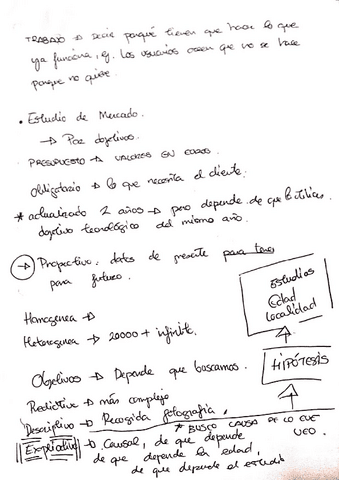 TRABAJO → Decir porqué tienen que hacer lo que
ya funciona, ej. Los usuarios creen que no se hace
porque no quiere.
• Estudio de Mercado.
→ Por objetivos.
PRESUPUESTO → VALORES EN
Obligatorio → lo que necesita el cliente.
* actualizado 2 años → pero depende de que lo utilices
objetivo tecnológico del mismo año.
→ Prospectivo, datos de presente para
para futuro.
Estudios
Edad
Localidad
Homogenea →
Heterogenea → 20000 + infinite.
HIPÓTESIS
Objetivos → Depende que buscamos.
Predictivo → más complejo
Descriptivo → Recogida fotografía,
* BUSCO CAUSA DE LO QUE
VEO.
Explicativo → Causal, de que depende
de que depende la edad,
de que depende el estudio